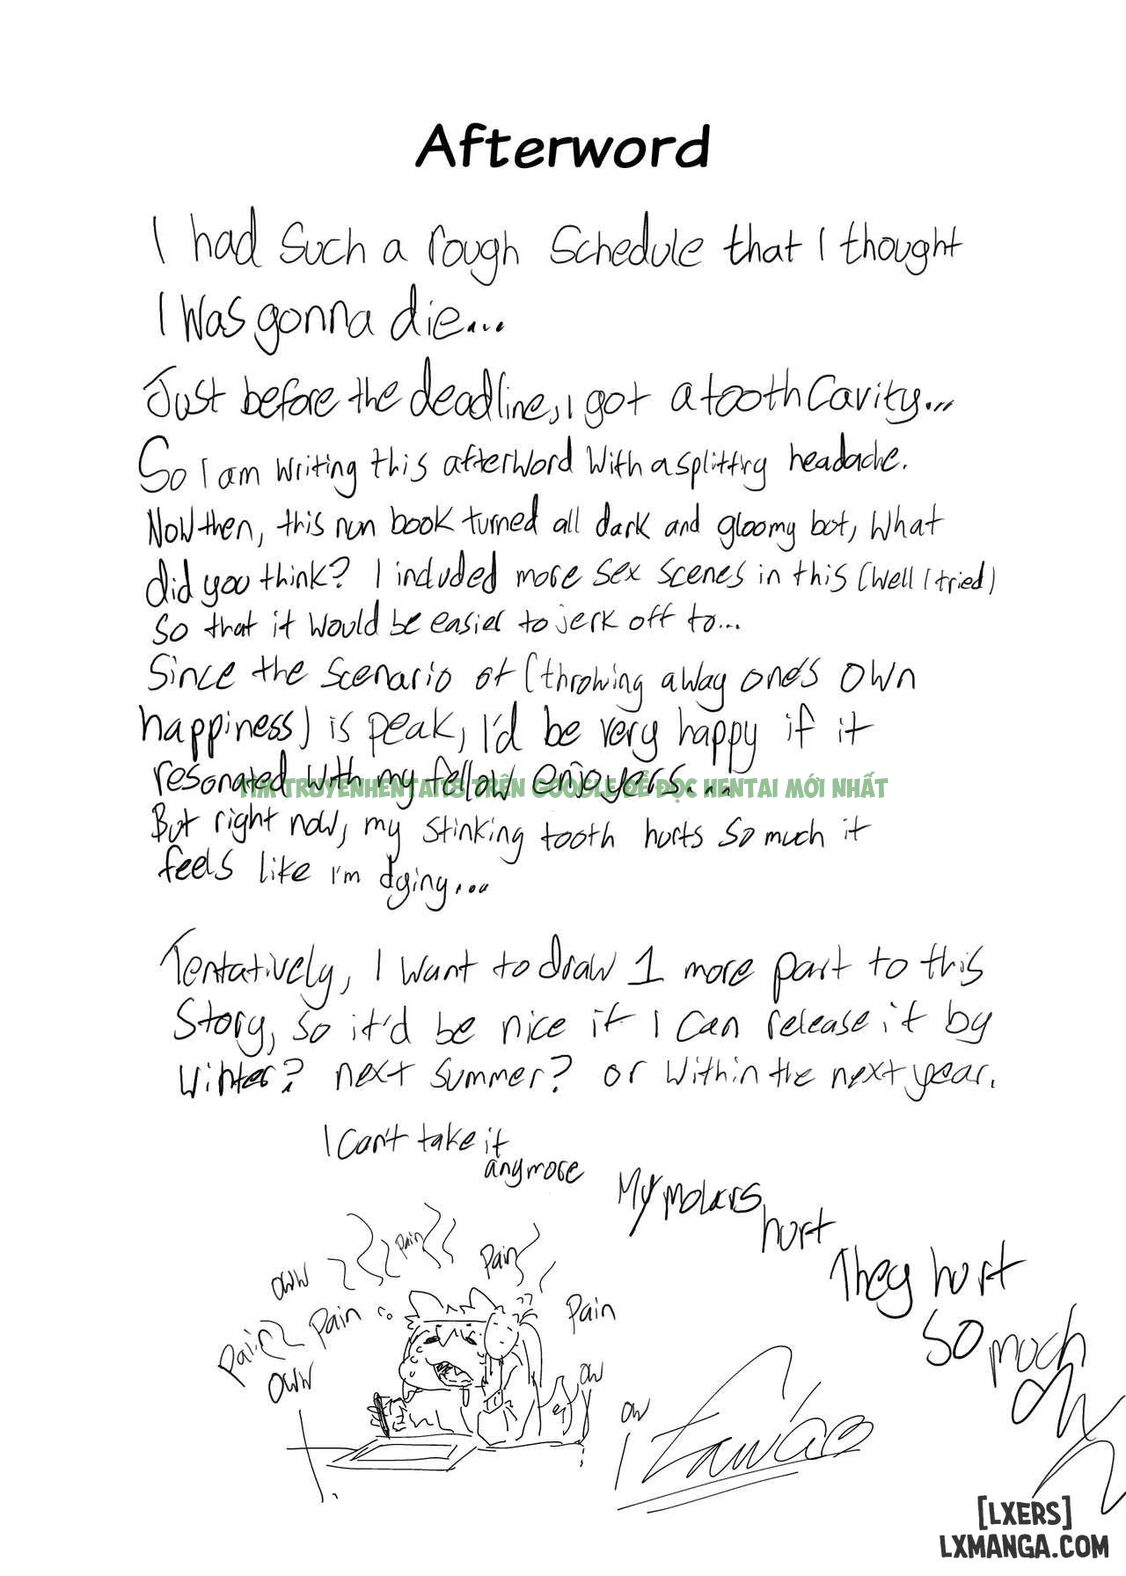 Afterword
I had such a rough schedule that I thought
I was gonna die...
Just before the deadline, I got a tooth cavity...
So I am writing this afterword with a splitting headache.
Now then, this nun book turned all dark and gloomy but, what
did you think? I included more sex scenes in this (well I tried)
so that it would be easier to jerk off to...
Since the scenario of (throwing away one's own
happiness) is peak, I'd be very happy if it
resonated with my fellow enjoyers...
TÌM TRUYENHENTAI18 TRÊN GOOGLE ĐỂ ĐỌC HENTAI MỚI NHẤT
But right now, my stinking tooth hurts so much it
feels like I'm dying...
Tentatively, I want to draw 1 more part to this
story, so it'd be nice if I can release it by
winter? next summer? or within the next year.
I can't take it
anymore
My molars
hurt
They hurt
so much
ow
Pain
Pain
oww
Pain
Pain
Pain
oww
ow
ow
[LXERS]
LXMANGA.COM